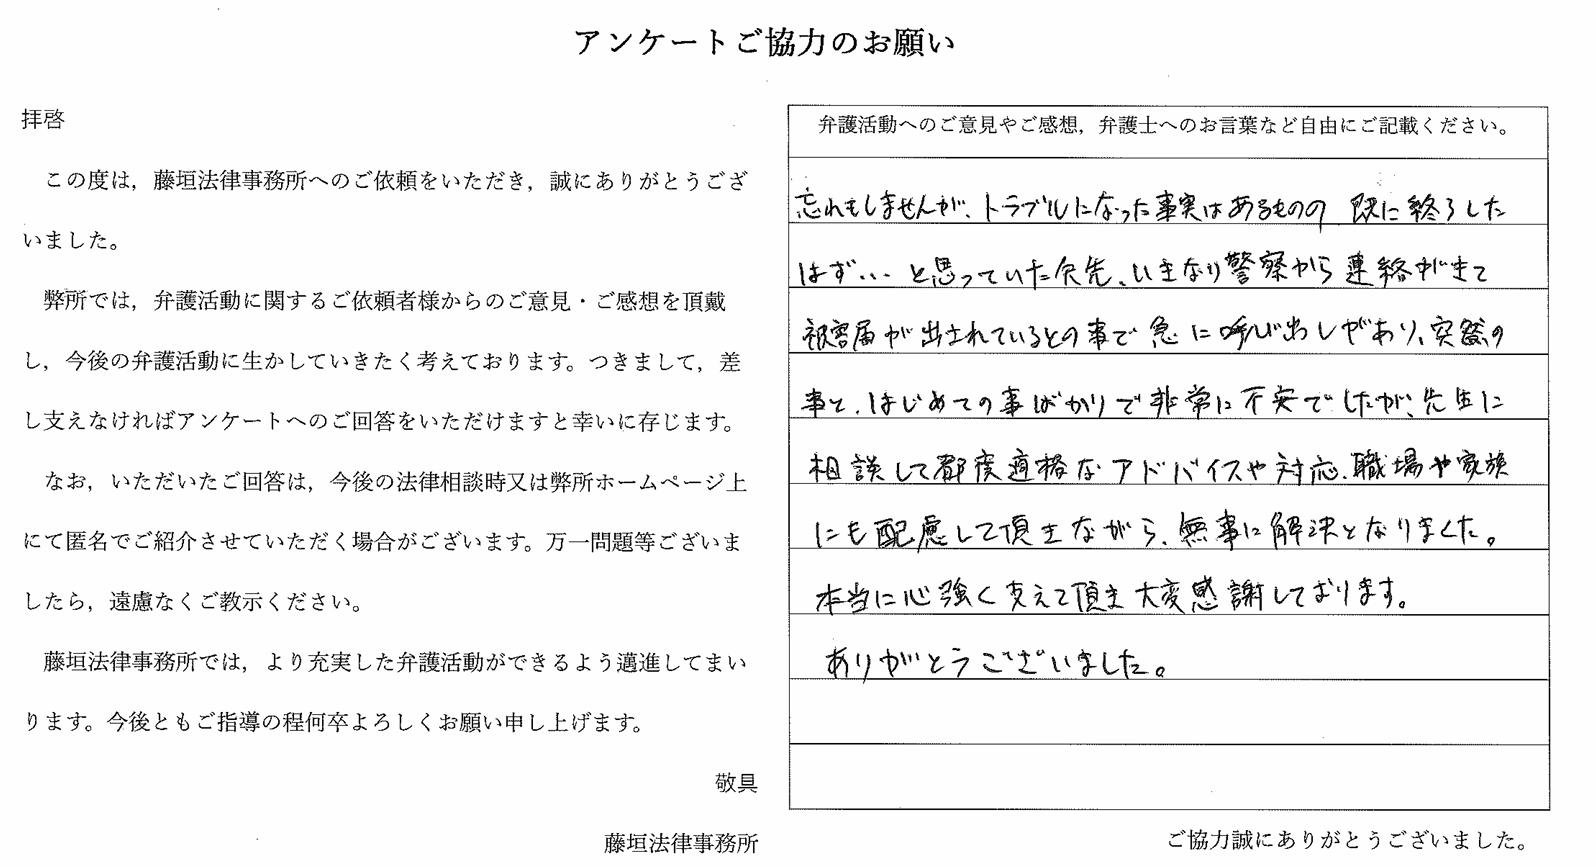 アンケートご協力のお願い
拝啓
この度は，藤垣法律事務所へのご依頼をいただき，誠にありがとうござ
いました。
弊所では，弁護活動に関するご依頼者様からのご意見・ご感想を頂戴
し，今後の弁護活動に生かしていきたく考えております。つきまして，差
し支えなければアンケートへのご回答をいただけますと幸いに存じます。
なお，いただいたご回答は，今後の法律相談時又は弊所ホームページ上
にて匿名でご紹介させていただく場合がございます。万一問題等ございま
したら，遠慮なくご教示ください。
藤垣法律事務所では，より充実した弁護活動ができるよう邁進してまい
ります。今後ともご指導の程何卒よろしくお願い申し上げます。
敬具
藤垣法律事務所
弁護活動へのご意見やご感想，弁護士へのお言葉など自由にご記載ください。
忘れもしませんが、トラブルになった事実はあるものの 既に終了した
はず… と思っていた矢先、いきなり警察から連絡がきて
被害届が出されているとの事で急に呼び出しがあり、突然の
事と、はじめての事ばかりで非常に不安でしたが、先生に
相談して都度適格なアドバイスや対応、職場や家族
にも配慮して頂きながら、無事に解決となりました。
本当に心強く支えて頂き大変感謝しております。
ありがとうございました。
ご協力誠にありがとうございました。